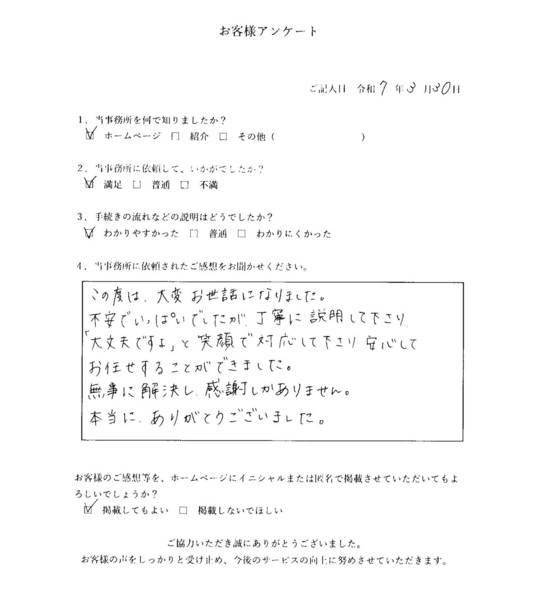 お客様アンケート
ご記入日 令和 7 年 3 月 30 日
1．当事務所を何で知りましたか？
☑ ホームページ □ 紹介 □ その他（ ）
2．当事務所に依頼して、いかがでしたか？
☑ 満足 □ 普通 □ 不満
3．手続きの流れなどの説明はどうでしたか？
☑ わかりやすかった □ 普通 □ わかりにくかった
4．当事務所に依頼されたご感想をお聞かせください。
この度は、大変お世話になりました。
不安でいっぱいでしたが、丁寧に説明して下さり、
「大丈夫ですよ」と笑顔で対応して下さり安心して
お任せすることができました。
無事に解決し、感謝しかありません。
本当に、ありがとうございました。
お客様のご感想等を、ホームページにイニシャルまたは匿名で掲載させていただいてもよ
ろしいでしょうか？
☑ 掲載してもよい □ 掲載しないでほしい
ご協力いただき誠にありがとうございました。
お客様の声をしっかりと受け止め、今後のサービスの向上に努めさせていただきます。